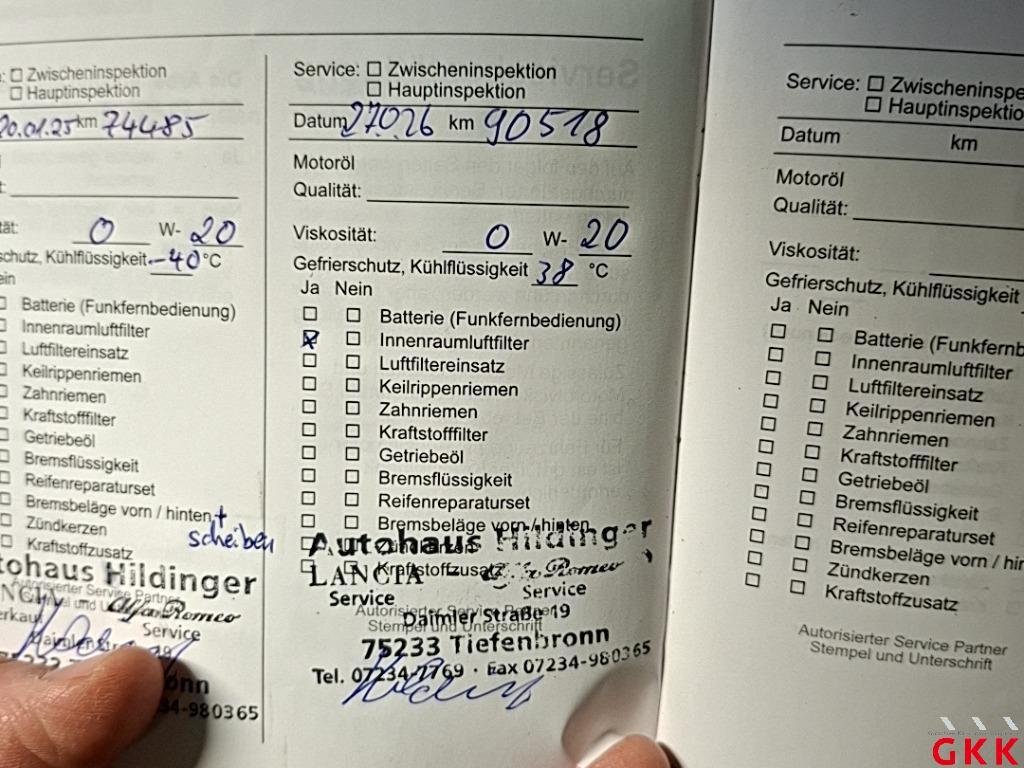 : ☐ Zwischeninspektion
☐ Hauptinspektion
20.01.25 km 74485
t:
tät: 0 W- 20
schutz, Kühlflüssigkeit -40 °C
ein
☐ Batterie (Funkfernbedienung)
☐ Innenraumluftfilter
☐ Luftfiltereinsatz
☐ Keilrippenriemen
☐ Zahnriemen
☐ Kraftstofffilter
☐ Getriebeöl
☐ Bremsflüssigkeit
☐ Reifenreparaturset
☐ Bremsbeläge vorn / hinten +
scheiben
☐ Zündkerzen
☐ Kraftstoffzusatz
tohaus Hildinger
Autorisierter Service Partner
Alfa Romeo
Service
erkauf
onn
34-980365
Service: ☐ Zwischeninspektion
☐ Hauptinspektion
Datum 27.01.26 km 90518
Motoröl
Qualität:
Viskosität: 0 W- 20
Gefrierschutz, Kühlflüssigkeit 38 °C
Ja Nein
☐ ☐ Batterie (Funkfernbedienung)
☒ ☐ Innenraumluftfilter
☐ ☐ Luftfiltereinsatz
☐ ☐ Keilrippenriemen
☐ ☐ Zahnriemen
☐ ☐ Kraftstofffilter
☐ ☐ Getriebeöl
☐ ☐ Bremsflüssigkeit
☐ ☐ Reifenreparaturset
☐ ☐ Bremsbeläge vorn / hinten
☐ ☐ Zündkerzen
☐ ☐ Kraftstoffzusatz
Autohaus Hildinger
LANCIA Alfa Romeo
Service Service
Autorisierter Service Partner
Stempel und Unterschrift
Daimler Straße 19
75233 Tiefenbronn
Tel. 07234-7769 · Fax 07234-980365
Service: ☐ Zwischeninspe
☐ Hauptinspektio
Datum km
Motoröl
Qualität:
Viskosität:
Gefrierschutz, Kühlflüssigkeit
Ja Nein
☐ ☐ Batterie (Funkfernb
☐ ☐ Innenraumluftfilter
☐ ☐ Luftfiltereinsatz
☐ ☐ Keilrippenriemen
☐ ☐ Zahnriemen
☐ ☐ Kraftstofffilter
☐ ☐ Getriebeöl
☐ ☐ Bremsflüssigkeit
☐ ☐ Reifenreparaturset
☐ ☐ Bremsbeläge vorn / hin
☐ ☐ Zündkerzen
☐ ☐ Kraftstoffzusatz
Autorisierter Service Partner
Stempel und Unterschrift
GKK